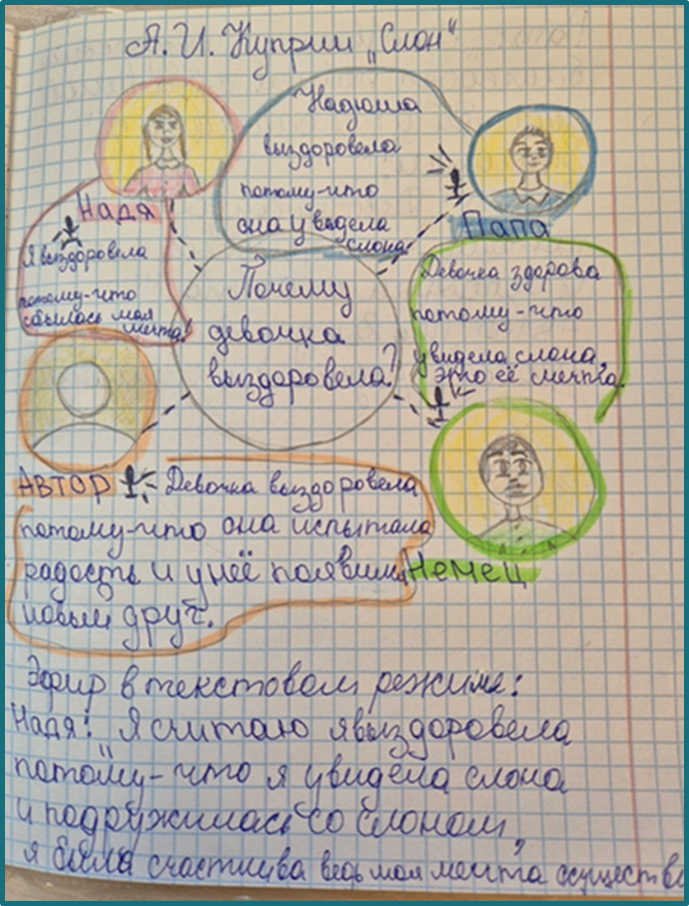 А. И. Куприн „Слон"
Надюша
выздоровела
потому-что
она увидела
слона
Надя
Я выздоровела
потому-что
сбылась моя
мечта!
Папа
Девочка здорова
потому-что
увидела слона.
Это её мечта.
Почему
девочка
выздоровела?
Автор
Девочка выздоровела
потому-что она испытала
радость и у неё появился
новый друг.
Немец
Эфир в текстовом режиме:
Надя: „Я считаю я выздоровела
потому-что я увидела слона
и подружилась со слоном,
я была счастлива ведь моя мечта осуществи